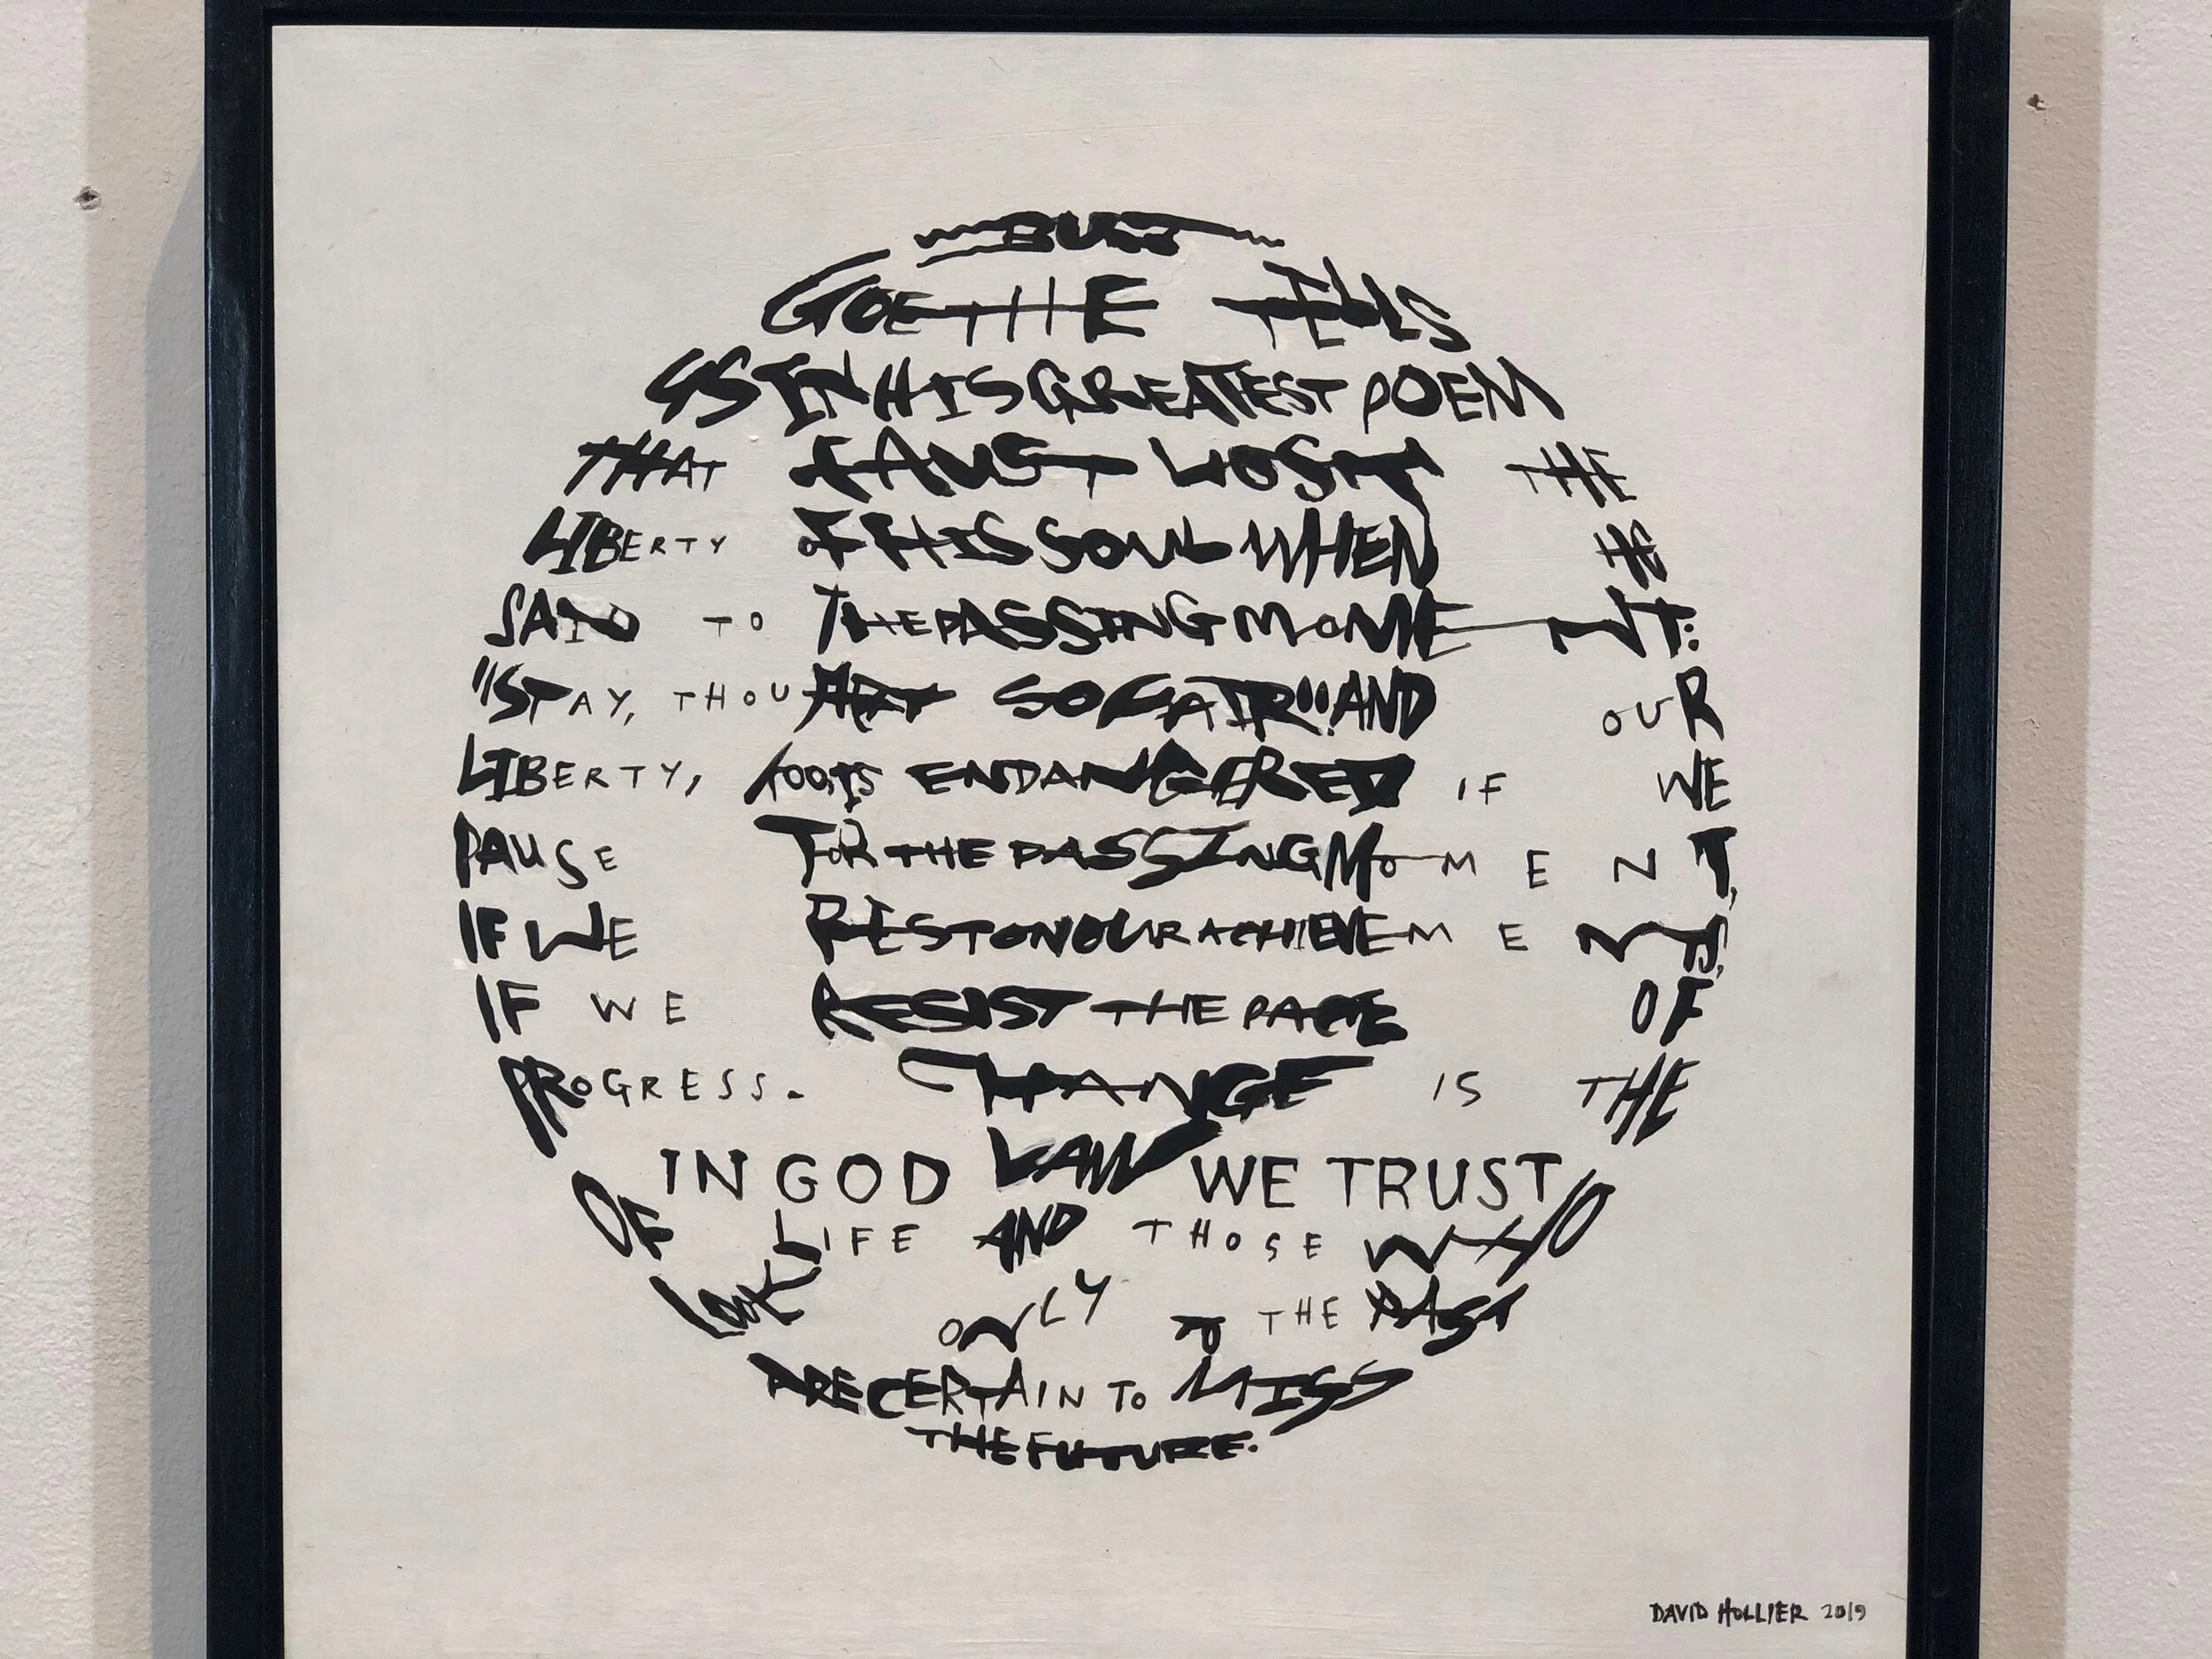 BUT
GOETHE TELLS
US IN HIS GREATEST POEM
THAT FAUST LOST THE
LIBERTY OF HIS SOUL WHEN HE
SAID TO THE PASSING MOMENT:
"STAY, THOU ART SO FAIR!" AND OUR
LIBERTY, TOO, IS ENDANGERED IF WE
PAUSE FOR THE PASSING MOMENT,
IF WE REST ON OUR ACHIEVEMENTS,
IF WE RESIST THE PACE OF
PROGRESS. CHANGE IS THE
LAW
IN GOD WE TRUST
OF LIFE AND THOSE WHO
LOOK ONLY TO THE PAST
ARE CERTAIN TO MISS
THE FUTURE.
DAVID HOLLIER 2019